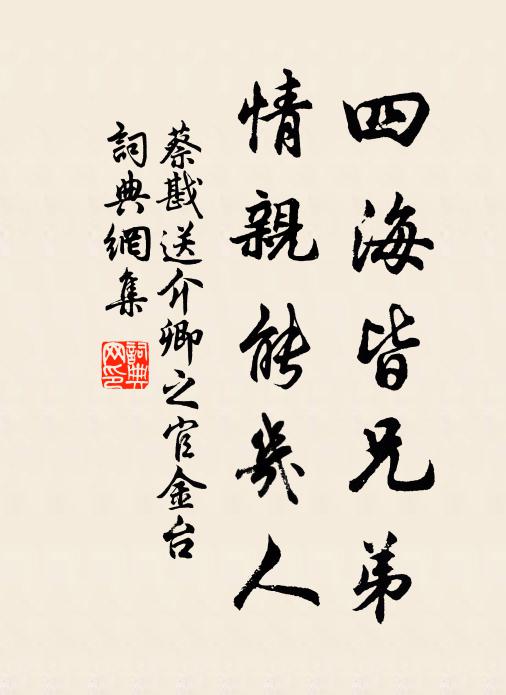 四海皆兄弟
情親能幾人
蔡戡送介卿之官金台
詞典網集
詞典網印